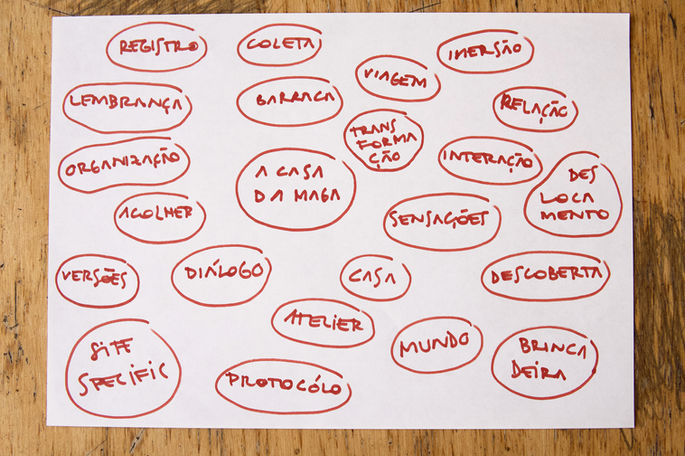 REGISTRO
COLETA
VIAGEM
IMERSÃO
LEMBRANÇA
BARRACA
RELAÇÃO
TRANS
FORMA
ÇÃO
ORGANIZAÇÃO
A CASA
DA MAGA
INTERAÇÃO
DES
LOCA
MENTO
ACOLHER
SENSAÇÕES
VERSÕES
DIÁLOGO
CASA
DESCOBERTA
ATELIER
MUNDO
BRINCA
DEIRA
SITE
SPECIFIC
PROTOCÓLO